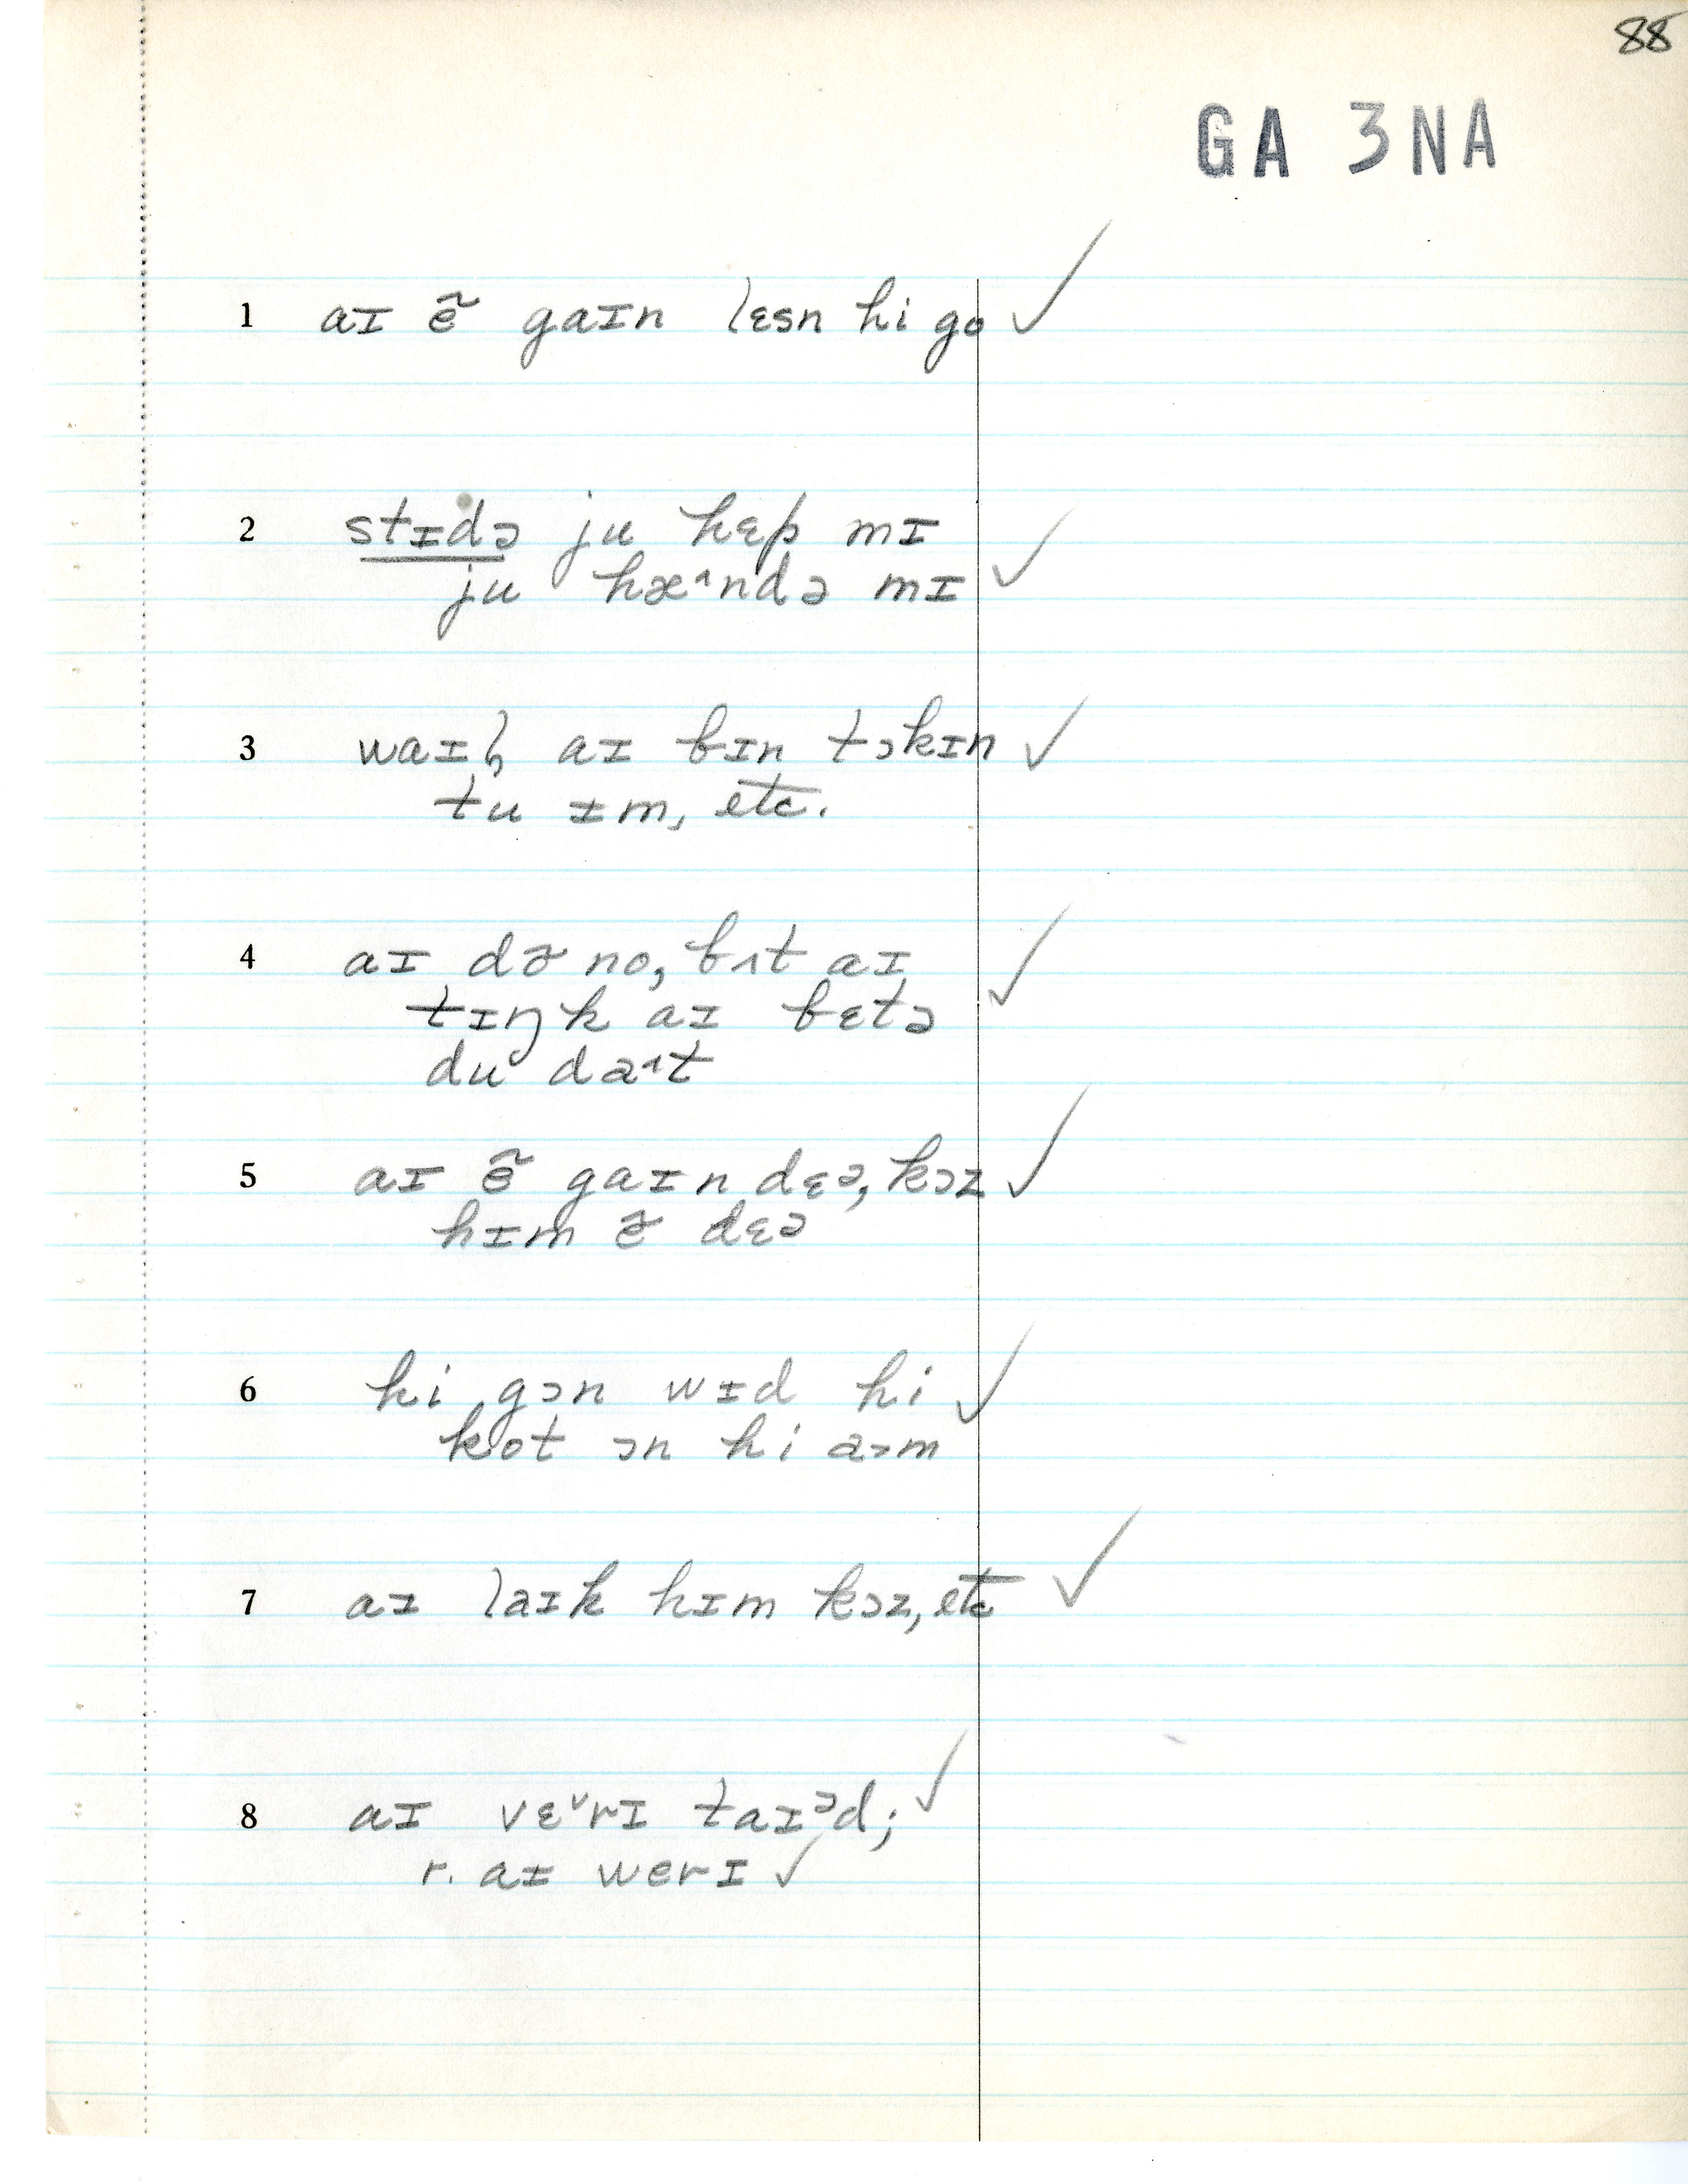 88
GA 3NA
1 aɪ ẽ gaɪn lɛsn hi go ✓
2 stɪdə ju hɛp mɪ
ju hæ˄ndə mɪ ✓
3 aɪ bɪn tɔkɪn ✓
tu ɪm, etc.
4 aɪ də̃ no, bʌt aɪ
tɪŋk aɪ bɛtə ✓
du da˄t
5 aɪ ẽ gaɪn dɛə, kɔz ✓
hɪm ẽ dɛə
6 hi gɔn wɪd hi ✓
kot ɔn hi aɔm
7 aɪ laɪk hɪm kɔz, etc ✓
8 aɪ vɛ˅rɪ taɪᵊd; ✓
r. aɪ werɪ ✓